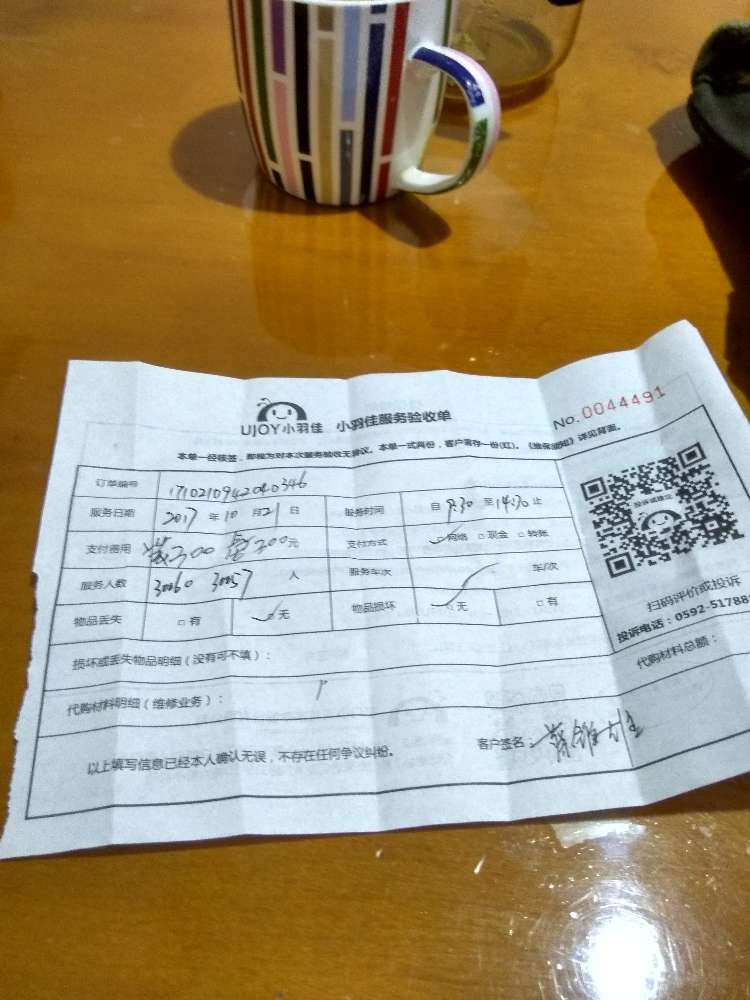 UJOY小羽佳 小羽佳服务验收单
No. 0044491
本单一经核签，即视为对本次服务验收无异议。本单一式两份，客户留存一份(红)。《维保须知》详见背面。
订单编号 1710210942040346
服务日期 2017 年 10 月 21 日 服务时间 自 9:30 至 14:30 止
支付费用 300 300元 支付方式 网络 □现金 □转账
服务人数 30060 30057 人 服务车次 车/次
物品丢失 □有 □无 物品损坏 □无 □有
损坏或丢失物品明细（没有可不填）：
代购材料明细（维修业务）：
代购材料总额：
以上填写信息已经本人确认无误，不存在任何争议纠纷。
客户签名：
投诉或建议
扫码评价或投诉
投诉电话：0592-51788